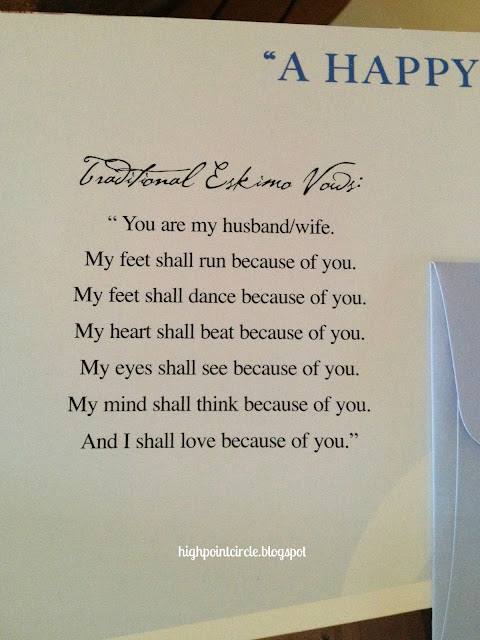 “A HAPPY
Traditional Eskimo Vows:
“ You are my husband/wife.
My feet shall run because of you.
My feet shall dance because of you.
My heart shall beat because of you.
My eyes shall see because of you.
My mind shall think because of you.
And I shall love because of you.”
highpointcircle.blogspot